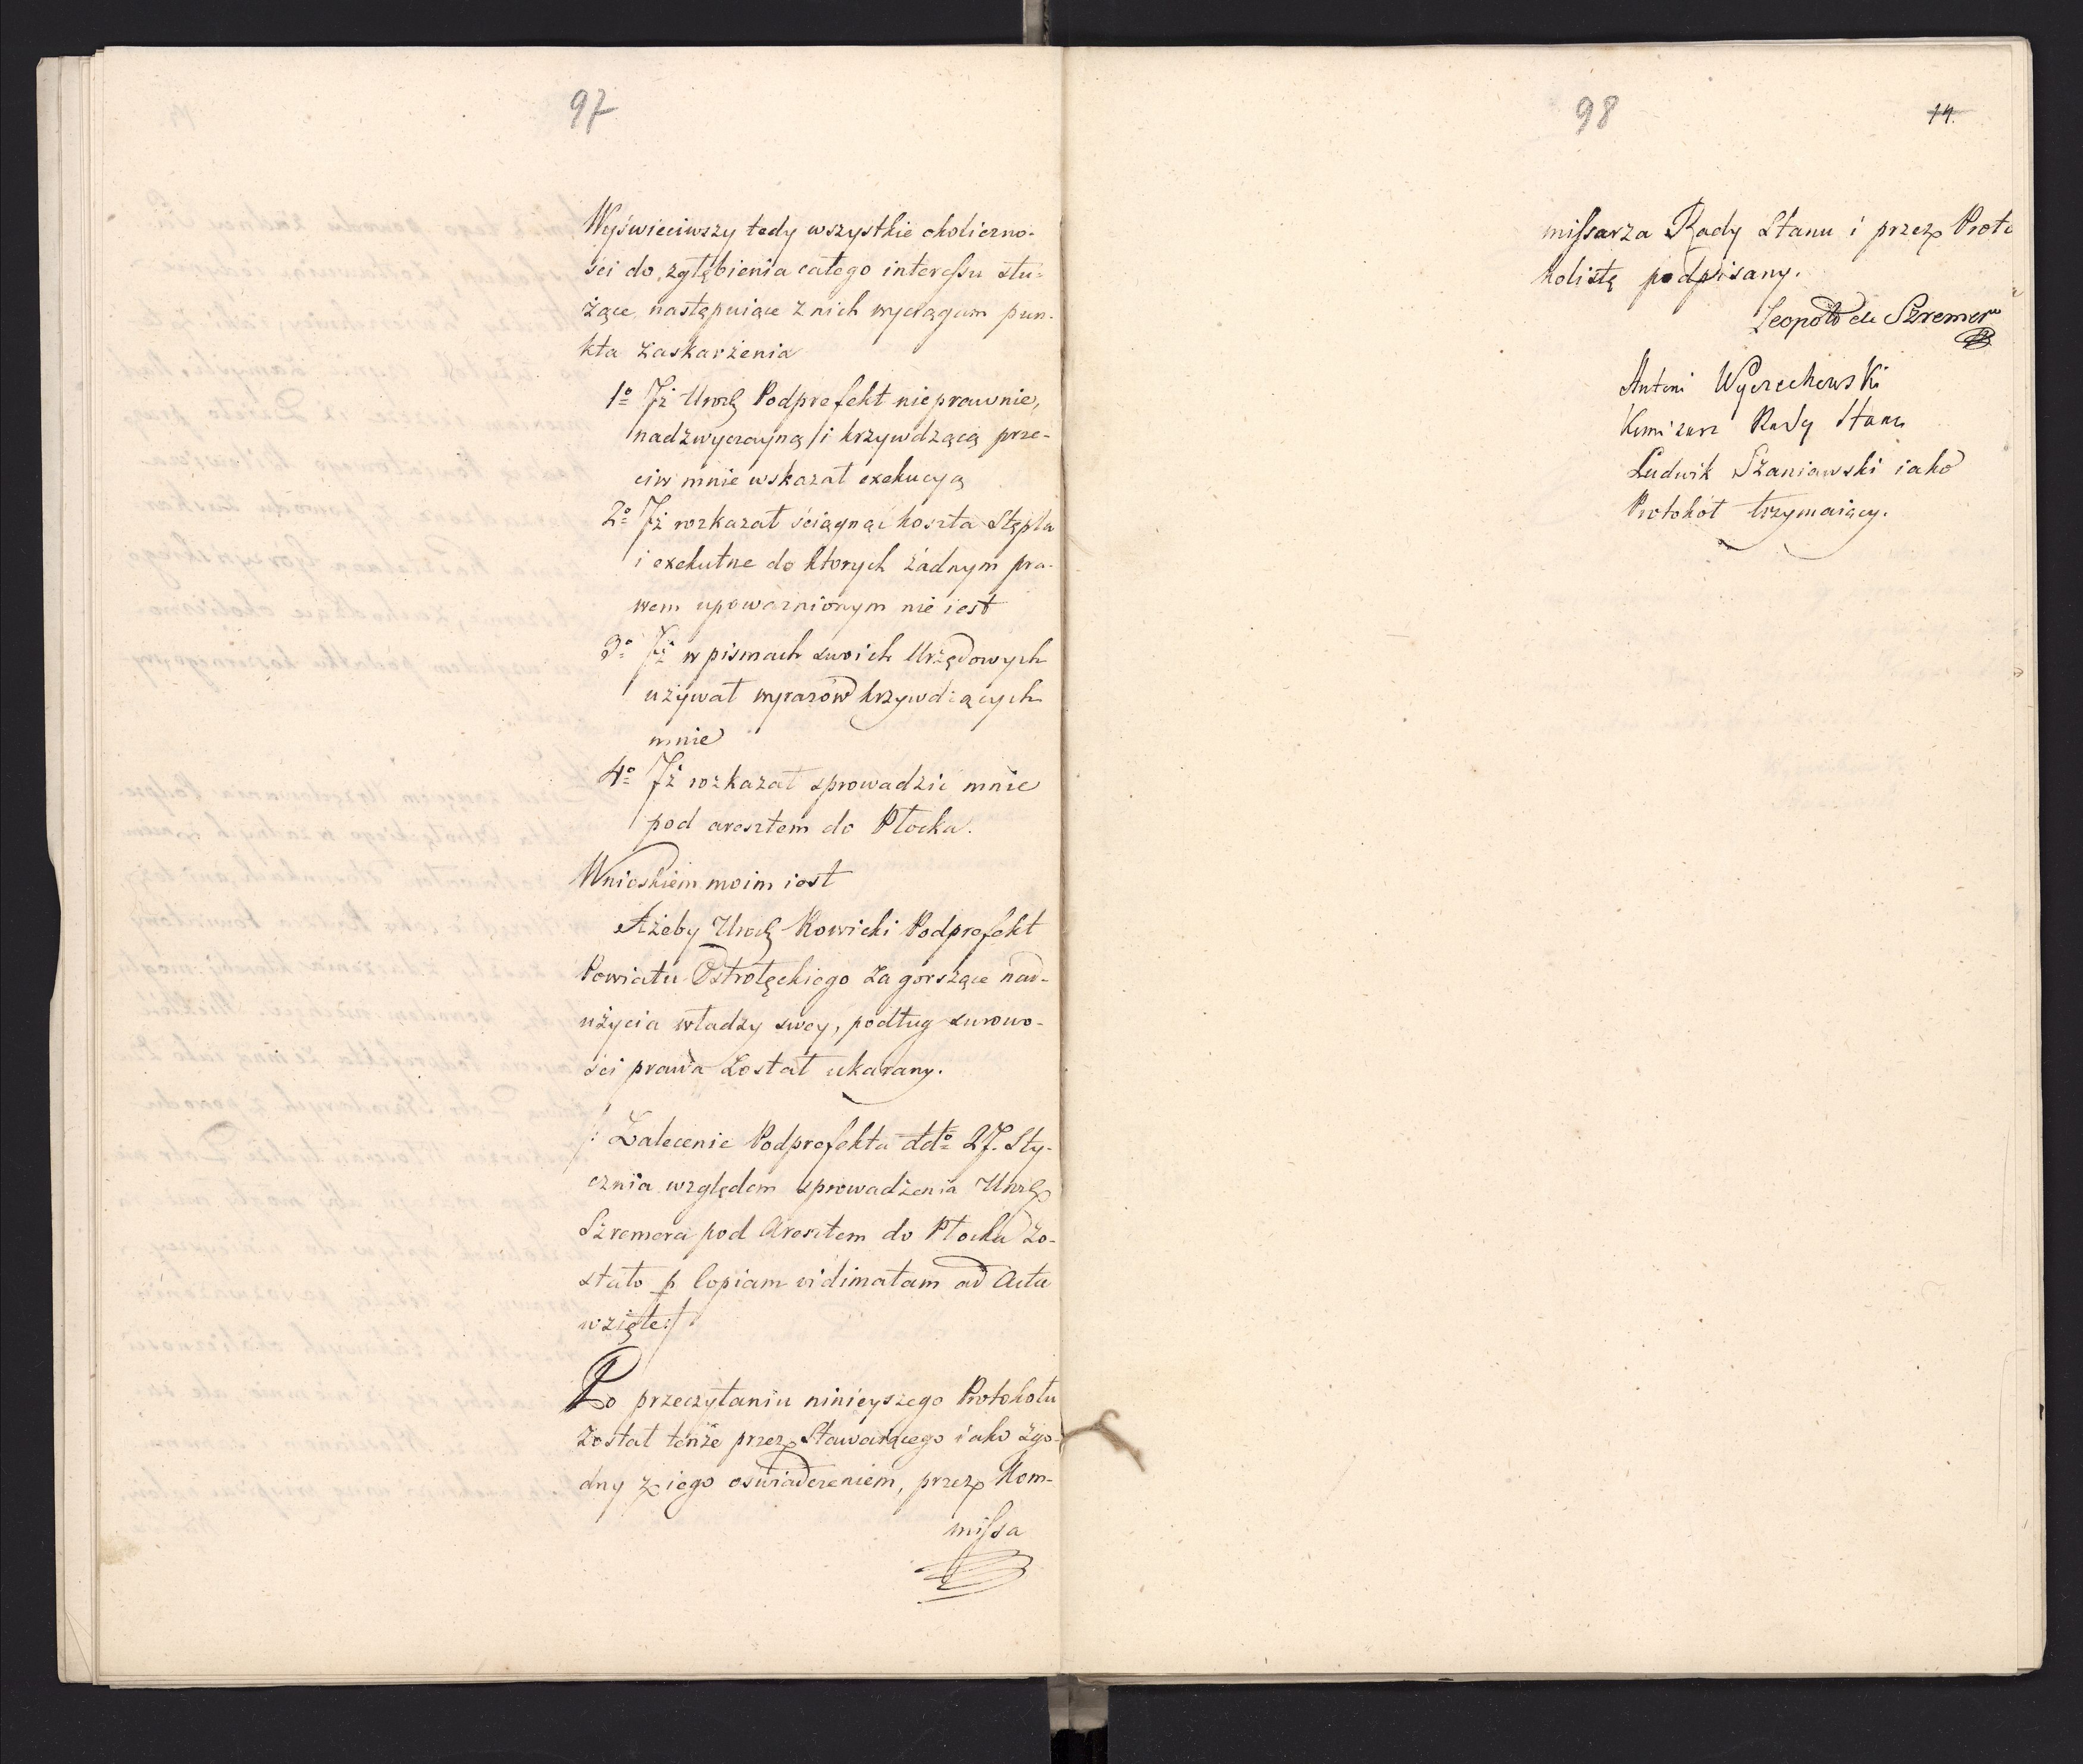 97
Wyświeciwszy tedy wszystkie okoliczno-
ści do zgłębienia całego interessu słu-
żące, następuiące z nich wyciągam pun-
kta zaskarżenia
1o Iż Urodz Podprefekt nieprawnie,
nadzwyczayną i krzywdzącą prze-
ciw mnie wskazał exekucyą
2o Iż rozkazał ściągnąć koszta Stępla
i exekutne do ktorych żadnym pra-
wem upoważnionym nie iest
3o Iż w pismach swoich Urzędowych
używał wyrazów krzywdzących
mnie
4o Iż rozkazał sprowadzić mnie
pod aresztem do Płocka.
Wnioskiem moim iest
Ażeby Urodz Nowicki Podprefekt
Powiatu Ostrołęckiego za gorszące nad-
użycia władzy swey, podług surowo-
ści prawa został ukarany.
/: Zalecenie Podprefekta ddto 27. Sty-
cznia względem sprowadzenia Urodz
Szremera pod Aresztem do Płocka zo-
stało p Copiam vidimatam ad Acta
wzięte :/
Po przeczytaniu ninieyszego Protokołu
został tenże przez Stawaiącego iako zgo-
dny z iego oswiadczeniem, przez Kom-
missa
98
14.
missarza Rady Stanu i przez Proto
kolistę podpisany.
Leopold de Szremer
Antoni Wyczechowski
Komisarz Rady Stanu
Ludwik Szaniawski iako
Protokół trzymaiący.